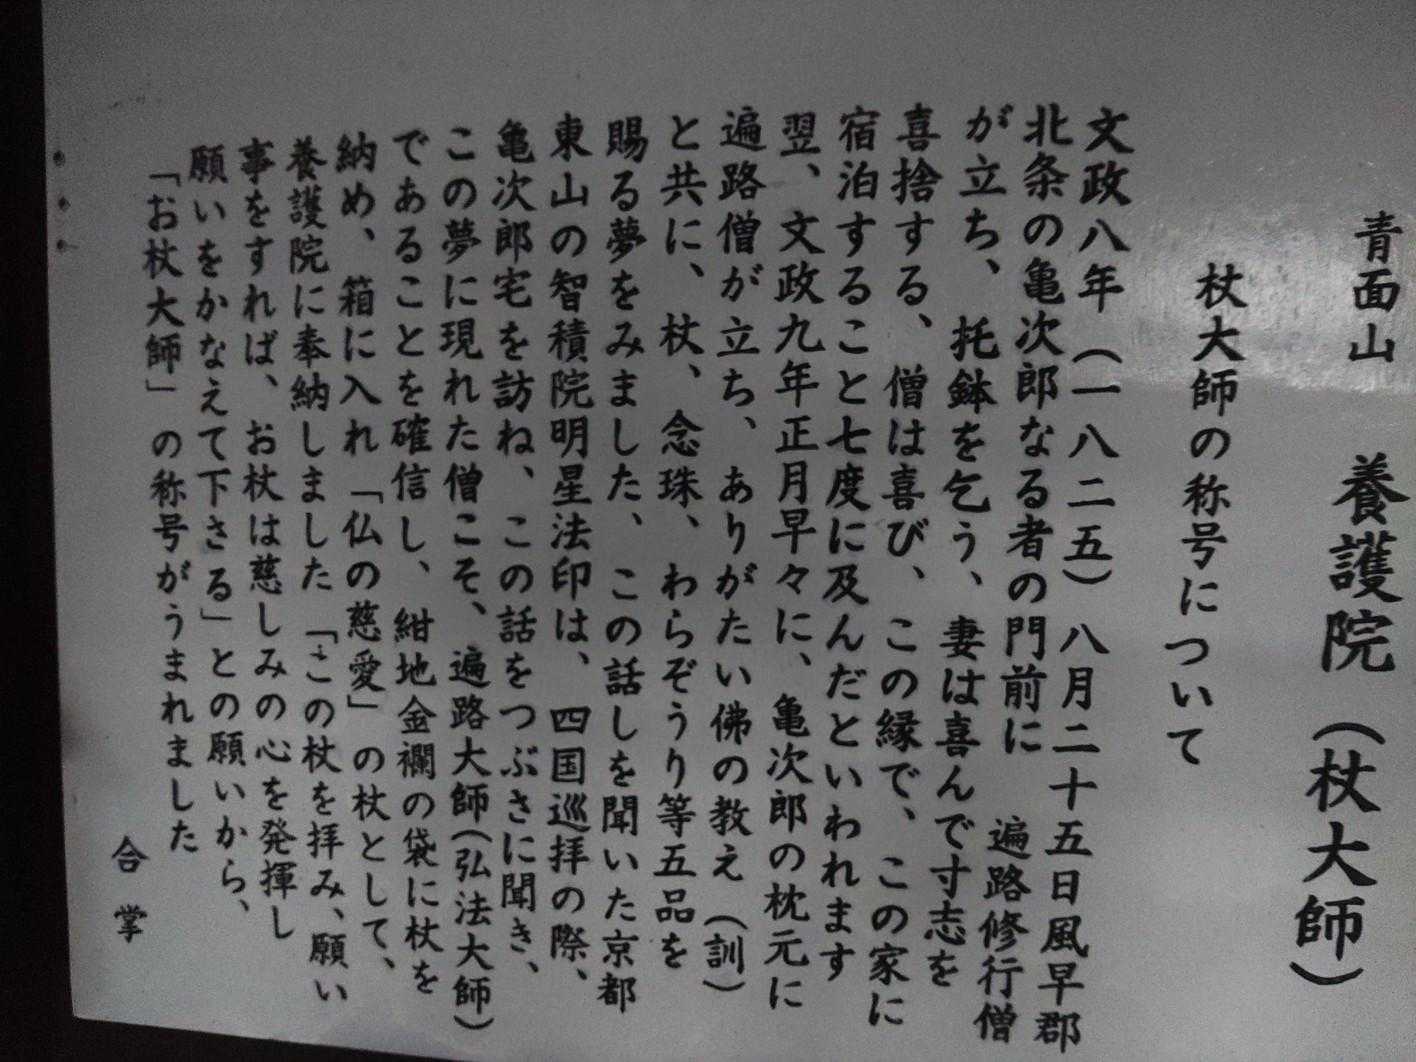 青面山　養護院（杖大師）
杖大師の称号について
文政八年（一八二五）八月二十五日風早郡
北条の亀次郎なる者の門前に　遍路修行僧
が立ち、托鉢を乞う、妻は喜んで寸志を
喜捨する、僧は喜び、この縁で、この家に
宿泊すること七度に及んだといわれます
翌、文政九年正月早々に、亀次郎の枕元に
遍路僧が立ち、ありがたい佛の教え（訓）
と共に、杖、念珠、わらぞうり等五品を
賜る夢をみました、この話しを聞いた京都
東山の智積院明星法印は、四国巡拝の際、
亀次郎宅を訪ね、この話をつぶさに聞き、
この夢に現れた僧こそ、遍路大師（弘法大師）
であることを確信し、紺地金襴の袋に杖を
納め、箱に入れ「仏の慈愛」の杖として、
養護院に奉納しました「この杖を拝み、願い
事をすれば、お杖は慈しみの心を発揮し
願いをかなえて下さる」との願いから、
「お杖大師」の称号がうまれました
合掌